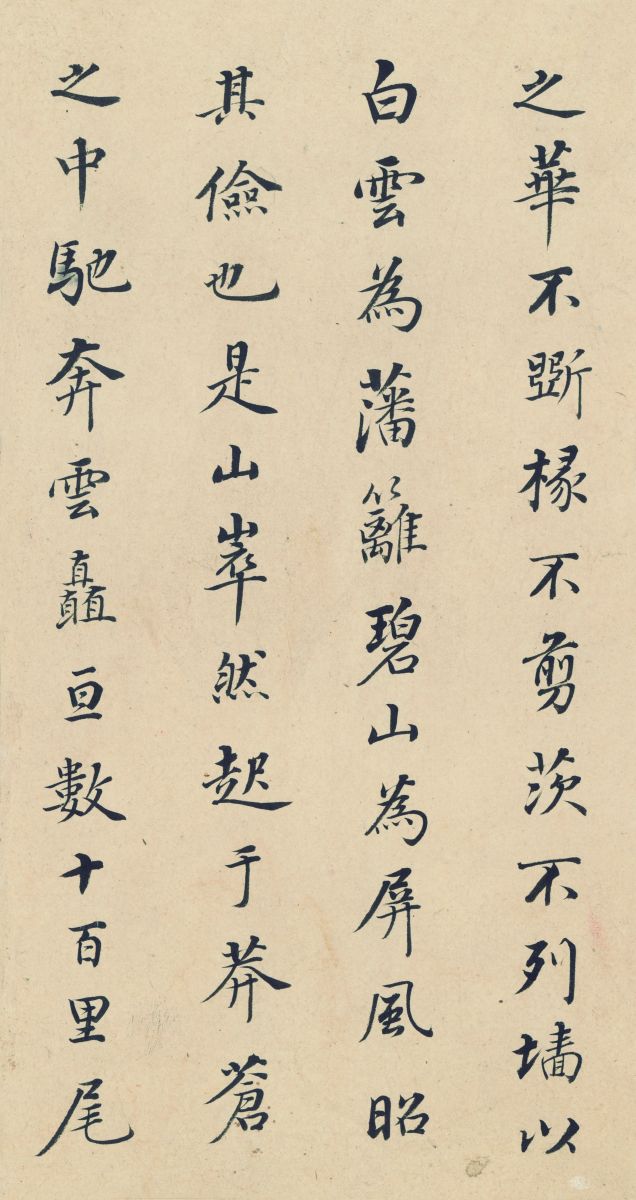 之華不斲椽不剪茨不列墻以
白雲為藩籬碧山為屏風昭
其儉也是山崒然起于莽蒼
之中馳奔雲矗亘數十百里尾